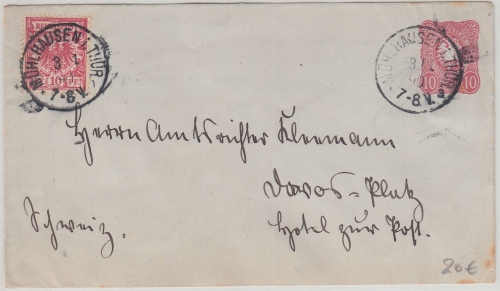 MÜHLHAUSEN i. THÜR.
7-8 V.
10
MÜHLHAUSEN i. THÜR.
7-8 V.
10 10
Herrn Amtsrichter Kleemann
Davos=Platz
Schweiz.
Hotel zur Post.
20 €